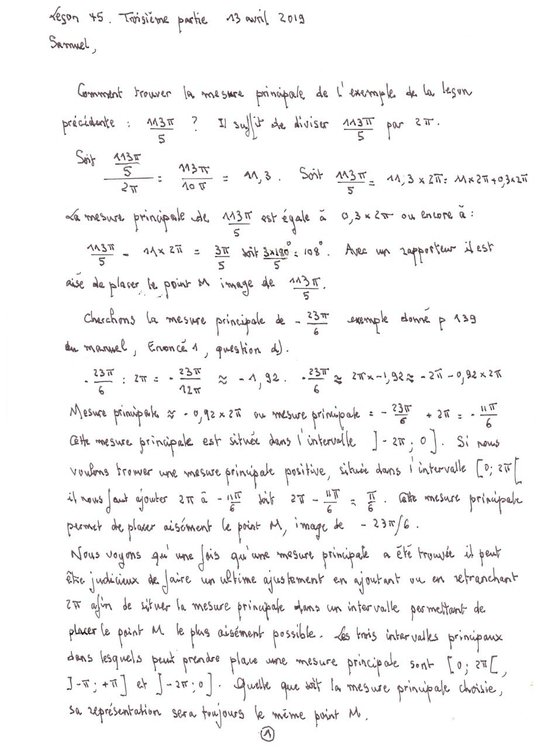 Leçon 45. Troisième partie 13 avril 2019
Samuel,
Comment trouver la mesure principale de l'exemple de la leçon
précédente : 113π/5 ? Il suffit de diviser 113π/5 par 2π.
Soit (113π/5)/2π = 113π/10π = 11,3. Soit 113π/5 = 11,3×2π = 11×2π+0,3×2π
La mesure principale de 113π/5 est égale à 0,3×2π ou encore à :
113π/5 - 11×2π = 3π/5 soit 3×180°/5 = 108°. Avec un rapporteur il est
aisé de placer le point M image de 113π/5.
Cherchons la mesure principale de -23π/6 exemple donné p 139
du manuel, Enoncé 1, question d).
-23π/6 : 2π = -23π/12π ≈ -1,92. -23π/6 ≈ 2π×-1,92 ≈ -2π-0,92×2π
Mesure principale ≈ -0,92×2π ou mesure principale = -23π/6 + 2π = -11π/6
Cette mesure principale est située dans l'intervalle ]-2π; 0]. Si nous
voulons trouver une mesure principale positive, située dans l'intervalle [0; 2π[
il nous faut ajouter 2π à -11π/6 soit 2π - 11π/6 = π/6. Cette mesure principale
permet de placer aisément le point M, image de -23π/6.
Nous voyons qu'une fois qu'une mesure principale a été trouvée il peut
être judicieux de faire un ultime ajustement en ajoutant ou en retranchant
2π afin de situer la mesure principale dans un intervalle permettant de
placer le point M le plus aisément possible. Les trois intervalles principaux
dans lesquels peut prendre place une mesure principale sont [0; 2π[,
]-π; +π] et ]-2π; 0]. Quelle que soit la mesure principale choisie,
sa représentation sera toujours le même point M.
1